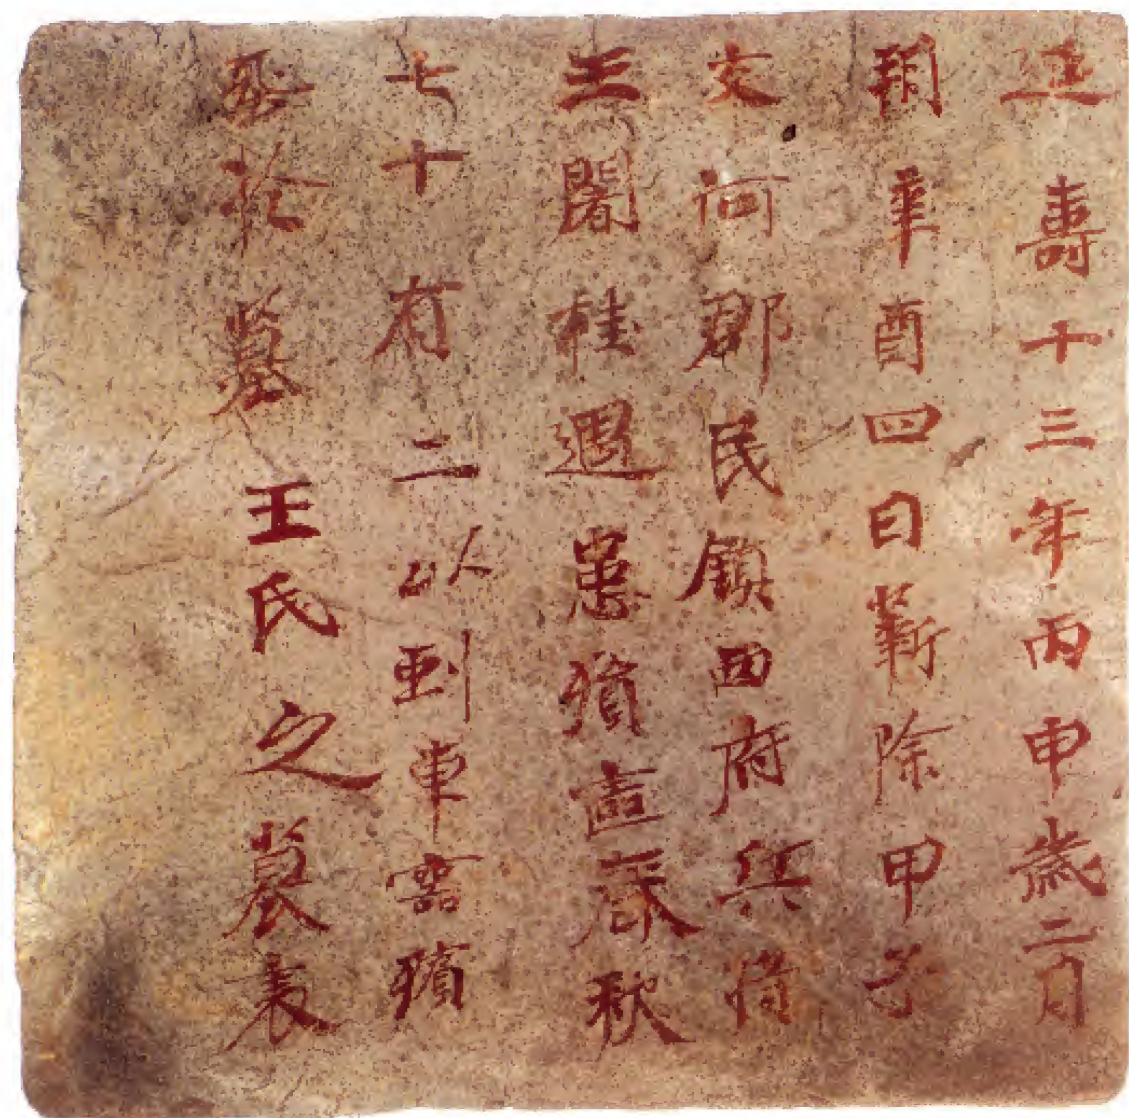 延壽十三年丙申歲二月
朔辛酉四日薪除甲子
交河郡民鎮西府兵將
王闍桂遇患殞喪春秋
七十有二以到車靈殯
於墓王氏之墓表